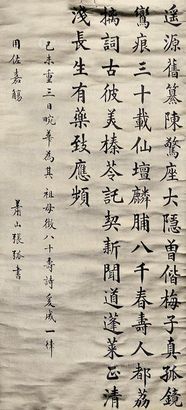 遙源舊纂陳驚座大隱曾偕梅子真孤鏡
鸞痕三十載仙壇麟脯八千春壽人都荔
摛詞古彼美榛苓託契新聞道蓬萊正清
淺長生有藥致應頻
己未重三日畹華為其祖母徵八十壽詩爰成一律
用佐嘉觴
蕭山張弧書